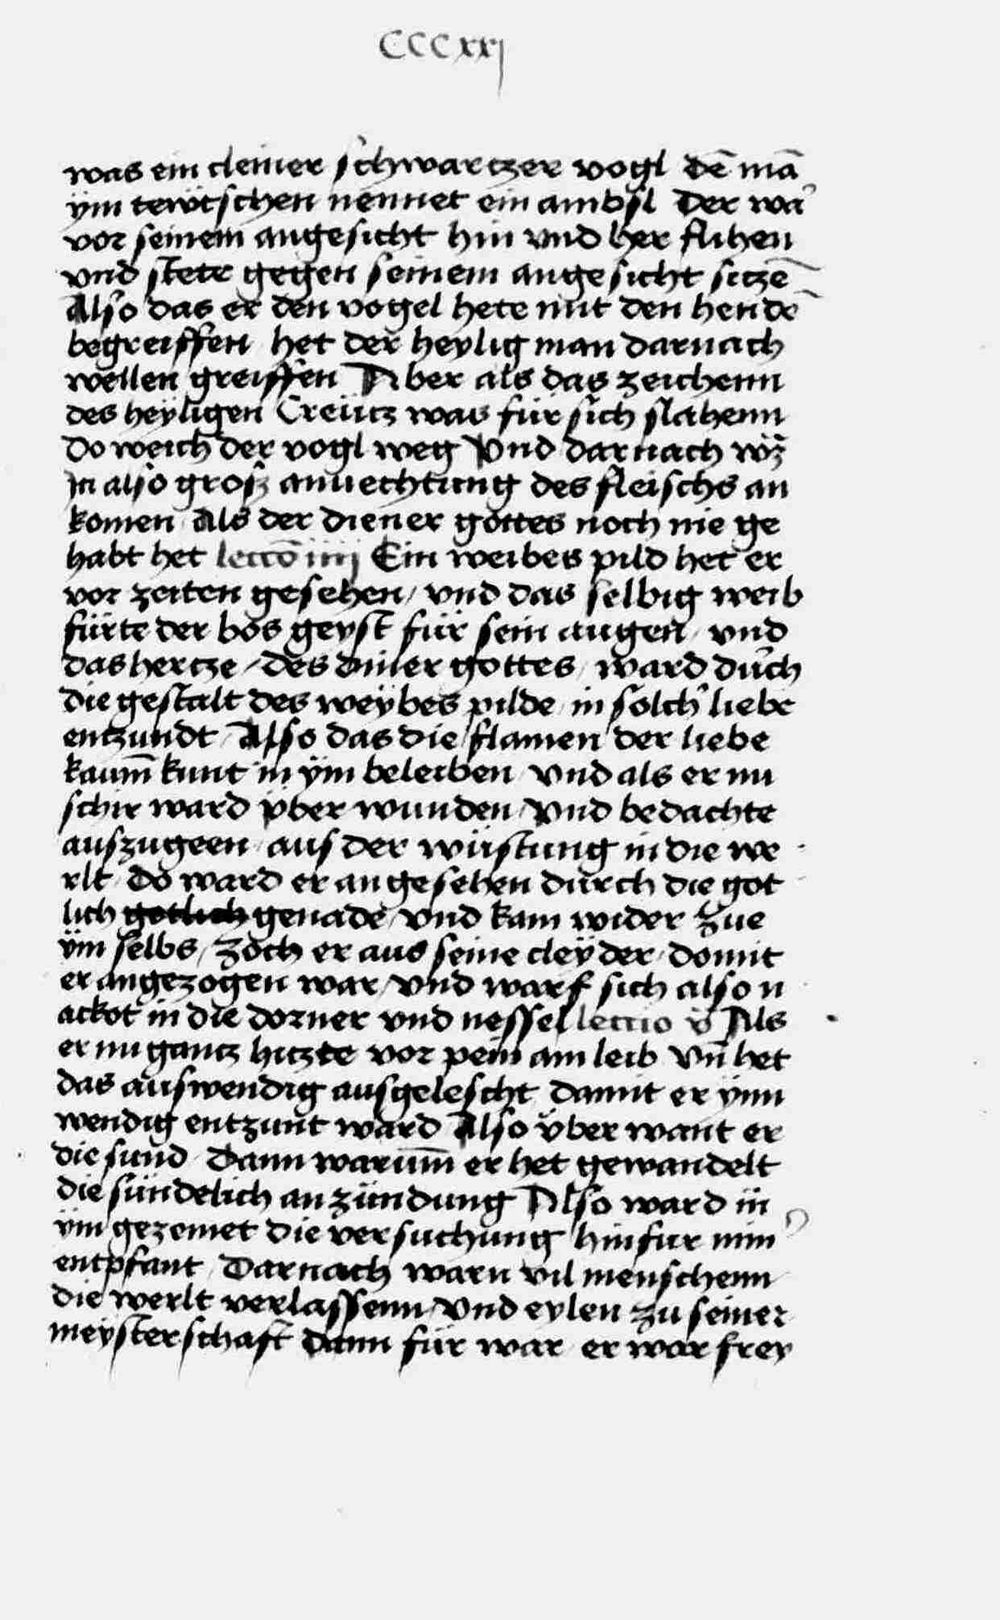 CCCxxj
was ein cleiner schwartzer vogl dē mā
ÿm tewtschen nennet ein ambsl Der wa
vor seinem angesicht hin vnd her flihen
vnd stete gegen seinem angesicht sitzē
Also das er den vogel hete mit den hendē
begreiffen het der heylig man darnach
wellen greiffen Aber als das zeichenn
des heyligen Creütz was für sich slahenn
Do weich der vogl weg Vnd darnach wz
In also grosz anuechtung des fleischs an
komen Als der diener gottes noch nie ge
habt het leccō iiij Ein weibes pild het er
vor zeiten gesehen / vnd das selbig weib
fürte der bos geyst für sein augen / vnd
das hertze / des diner gottes / ward durch
die gestalt des weÿbes pilde / in solch liebe
entzundt Also das die flamen der liebe
kaum̄ kunt in ÿm beleiben vnd als er nu
schir ward ÿber wunden / Vnd bedachte
auszugeen aus der wüstung in die we
rlt Do ward er angesehen dürch die got
lich gotlich genade / vnd kam wider zue
ÿm selbs / zoch er aus seine cleÿder / domit
er angezogen war / vnd warf sich also n
ackot in die dorner vnd nessel leccio v Als
er nu gantz hitzte vor pein am leib Vn̄ het
das auswendig ausgelescht damit er ÿnn
wendig entzunt ward Also ÿber want er
die sund Dann warum̄ er het gewandelt
die sündelich anzündung Also ward in
ÿm gezomet die versuchung hinfur nim
entpfant Darnach warn vil menschenn
die werlt verlassenn / Vnd eylen zu seiner
meÿsterschaft Dann für war er wor freÿ